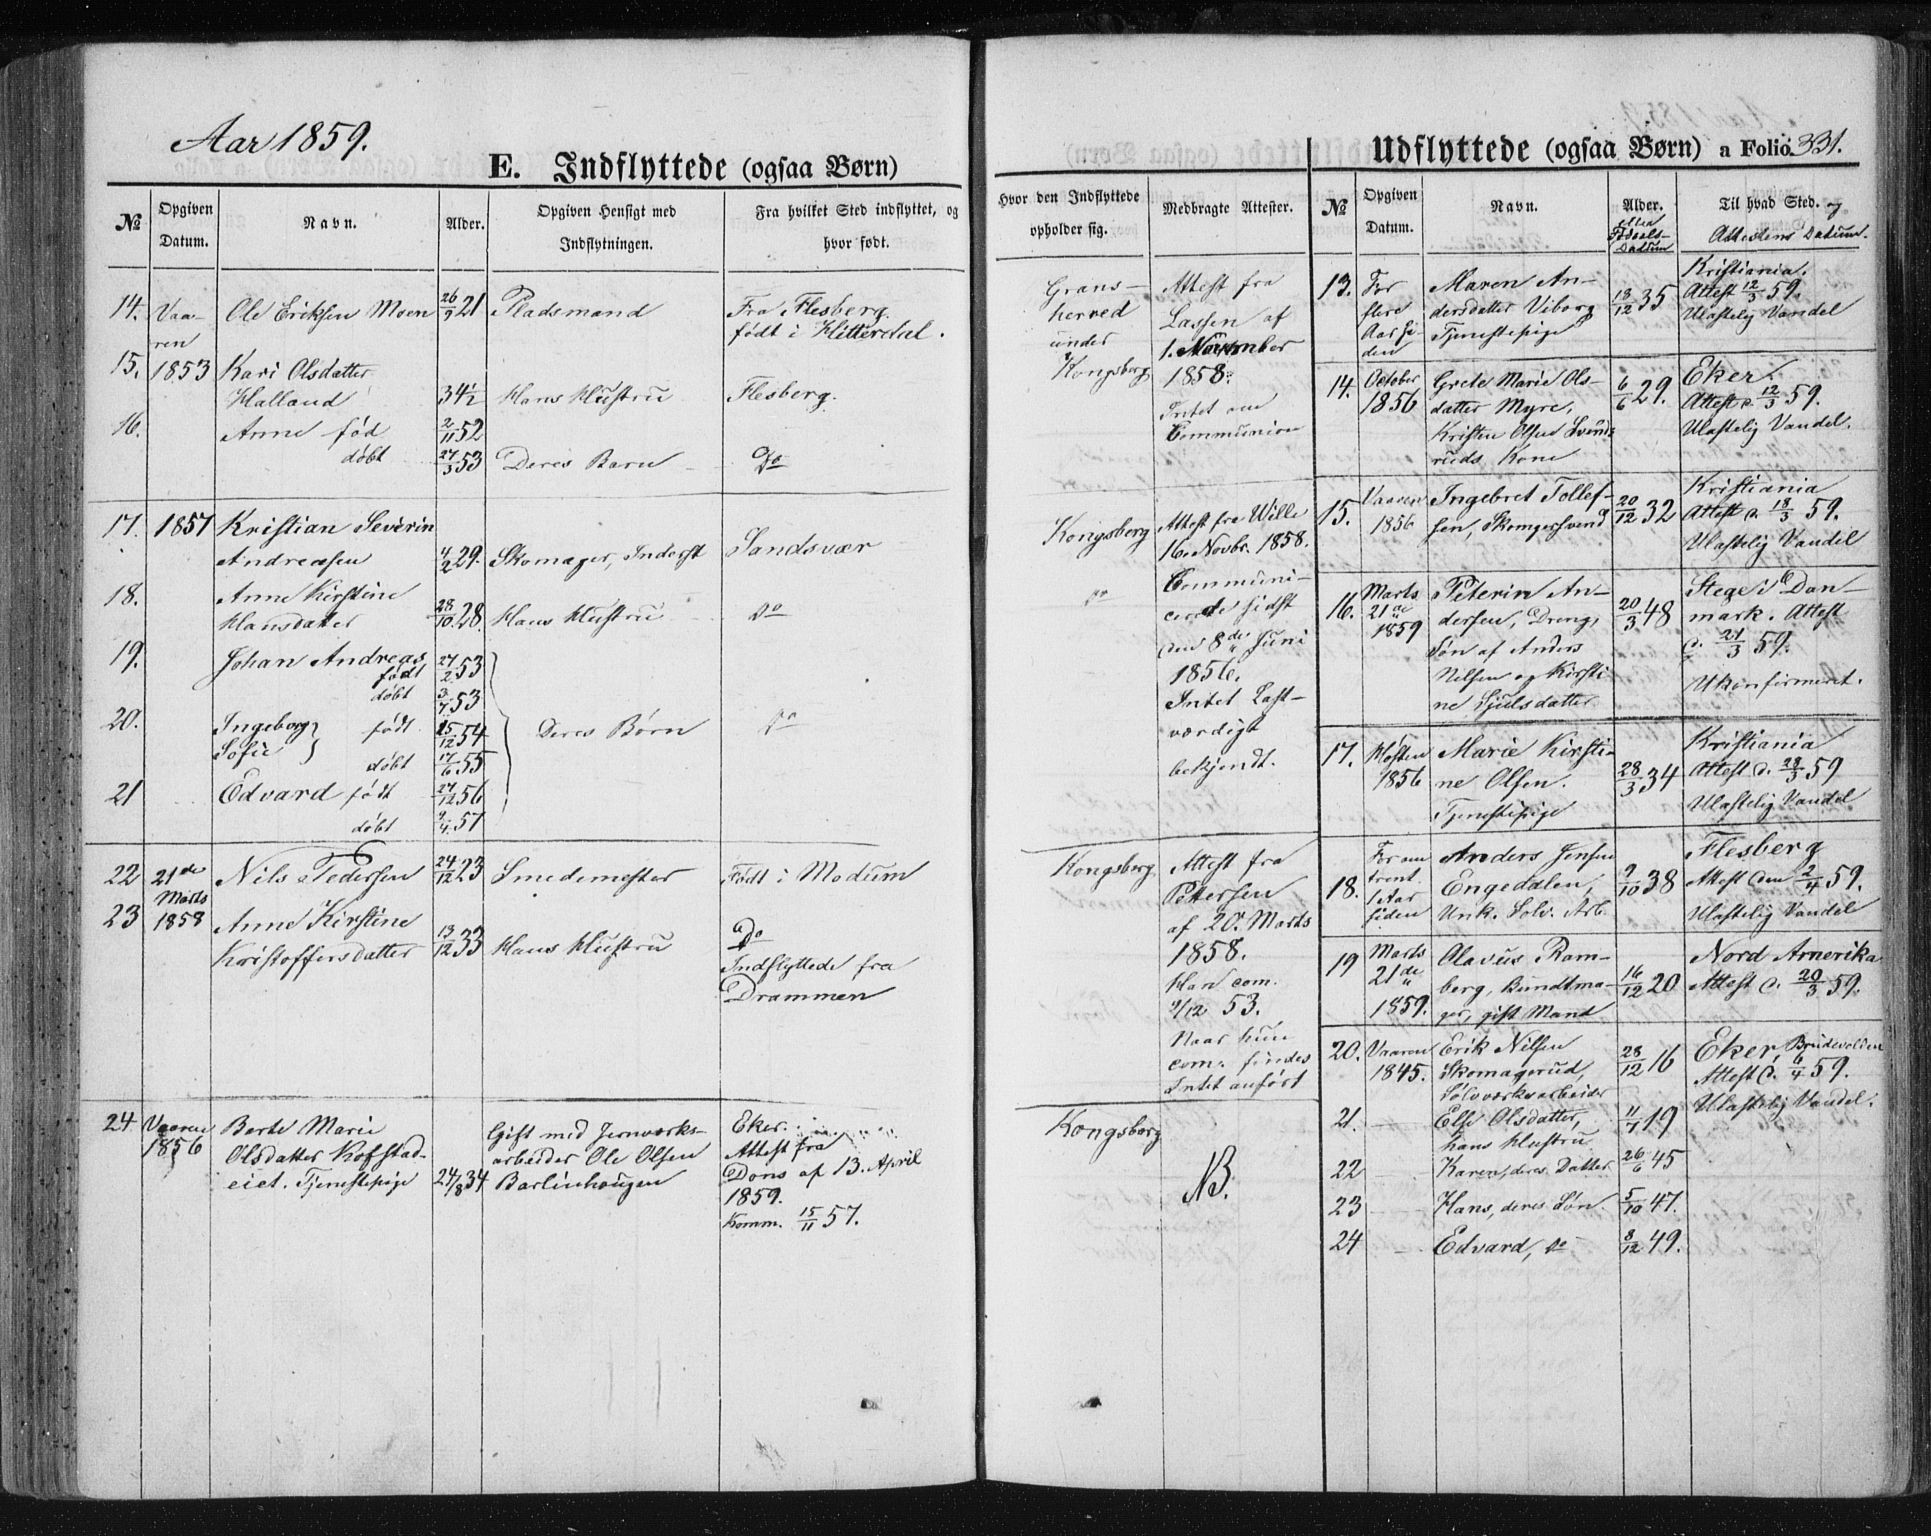 Aar 1859.
E. Indflyttede (ogsaa Børn)
№
Opgiven Datum.
Navn.
Alder.
Opgiven Hensigt med Indflytningen.
Fra hvilket Sted indflyttet, og hvor født.
14. Vaa- Ole Eriksen Moen 26/9 21 Pladsmand Fra Flesberg.
ren født i Hitterdal.
15. 1853 Kari Olsdatter
Halland 34½ Hans Hustru Flesberg.
16. Anne fød 2/11 52
døbt 27/3 53 Deres Barn Do
17. 1857 Kristian Severin
Andreasen 4/2 29. Skomager, Inderst Sandsvær
18. Anne Kirstine
Hansdatter 28/10 28. Hans Hustru do
19. Johan Andreas
født 27/2 53
døbt 3/7 53
20. Ingeborg født 15/12 54 Deres Børn do
Sofie døbt 17/6 55
21 Edvard født 27/12 56
døbt 9/4 57
22 21de Nils Pedersen 24/12 23 Smedemester Født i Modum
Marts
23 1858 Anne Kirstine
Kristoffersdatter 13/12 33 Hans Hustru Do
Indflyttede fra
Drammen
24 Vaaren Berte Marie Gift med Jernværks- Eker.
1856 Olsdatter Kofstad- arbeider Ole Olsen Attest fra
eiet. Tjenestepige 24/8 34 Barlinhaugen Dons af 13. April
1859.
Komm. 15/11 57.
Hvor den Indflyttede opholder sig.
Medbragte Attester.
Grans-
herred
under
Kongsberg
Attest fra
Lassen af
1. November
1858.
Intet om
Communion
Kongsberg Attest fra Wille
16. Novbr. 1858.
do Communi-
cerede sidst
den 8de Juni
1856.
Intet Last-
værdigt
bekjendt.
Kongsberg Attest fra
Pettersen
af 20. Marts
1858.
Han com.
9/12 53.
Naar hun
com. findes
Intet anført
Kongsberg
NB.
Udflyttede (ogsaa Børn) a Folio 331.
№
Opgiven Datum.
Navn.
Alder.
eller
Fødsels-
Datum
Til hvad Sted. og
Attestens Datum.
13. For Maren An- 18/12 35 Kristiania.
flere dersdatter Viborg Attest 12/3 59.
Aar si- Tjenestepige Ulastelig Vandel
den
14. October Grete Marie Ols- 6/6 29. Eker.
1856 datter Myre, Attest d. 12/3 59.
Kristen Olsen Svends- Ulastelig Vandel.
ruds Kone
15. Vaaren Ingebret Tollef- 20/12 32 Kristiania
1856 sen, Skomgersvend Attest d. 18/3 59.
Ulastelig Vandel
16. Marts Peterin An- 20/3 48 Stege i Dan-
21de dersen, Dreng, mark. Attest
1859 Søn af Anders d. 21/3 59.
Nilsen og Kirsti- Ukonfirmeret.
ne Hjulsdatter
17. Høsten Marie Kirsti- 28/3 34 Kristiania
1856 ne Olsen. Attest d. 28/3 59
Tjenestepige Ulastelig Vandel
18. For om Anders Jensen 9/10 38 Flesberg
trent Engedalen, Attest den 2/4 59.
1 Aar Unk. Sølv. Arb. Ulastelig Vandel
siden
19 Marts Olavus Ram- 16/12 20 Nord Amerika
21de berg, Bundtma- Attest d. 20/3 59.
1859. ger, gift Mand
20. Vaaren Erik Nilsen 28/12 16 Eker, Brudevolden
1845. Skomagerud, Attest d. 6/4 59.
Sølvværksarbeider Ulastelig Vandel.
21. Else Olsdatter, 11/7 19
hans Hustru
22 Karen, deres Datter 26/6 45
23 Hans, deres Søn. 5/10 47.
24 Edvard, do 8/12 49.